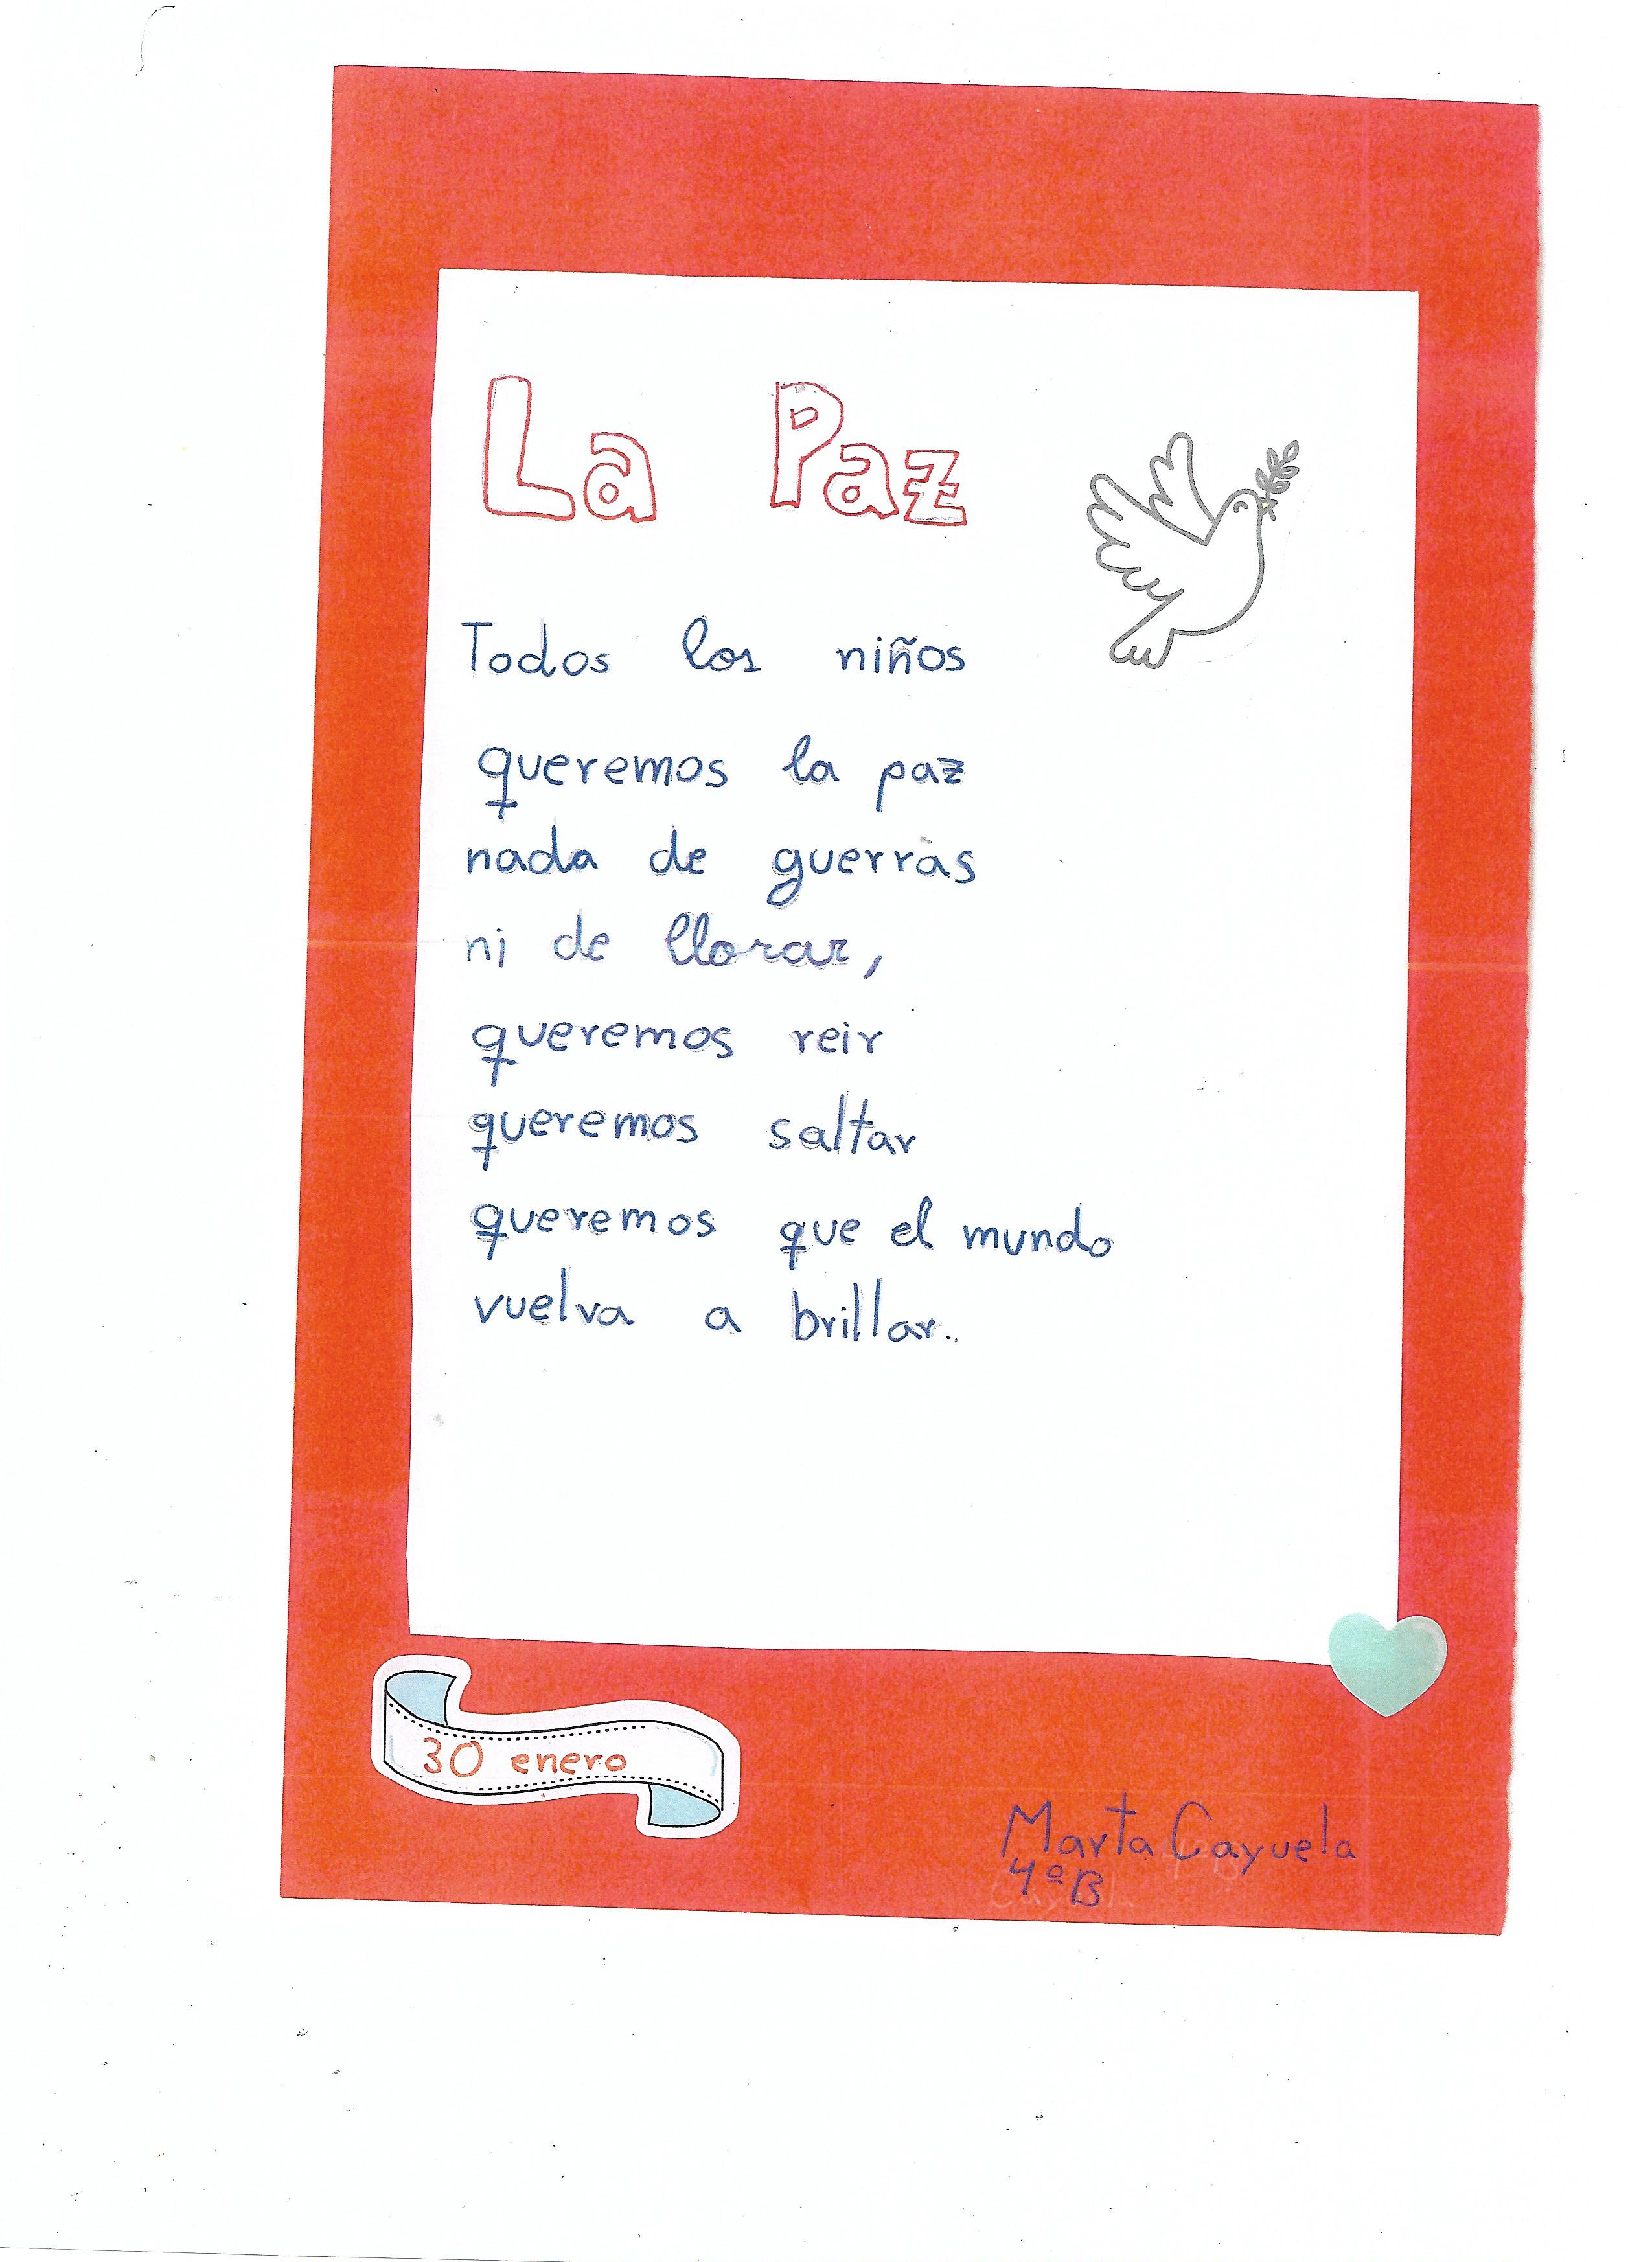 La Paz
Todos los niños
queremos la paz
nada de guerras
ni de llorar,
queremos reir
queremos saltar
queremos que el mundo
vuelva a brillar.
30 enero
Marta Cayuela
4º B